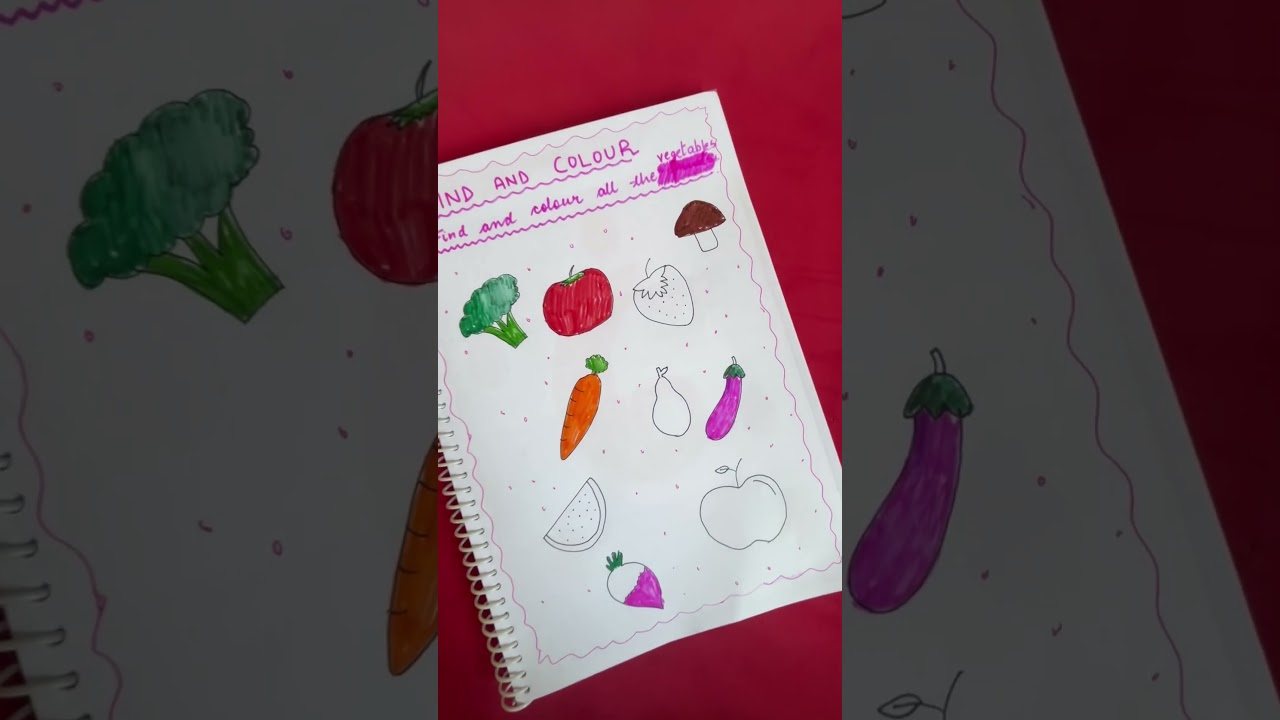 IND AND COLOUR
vegetables
Find and colour all the